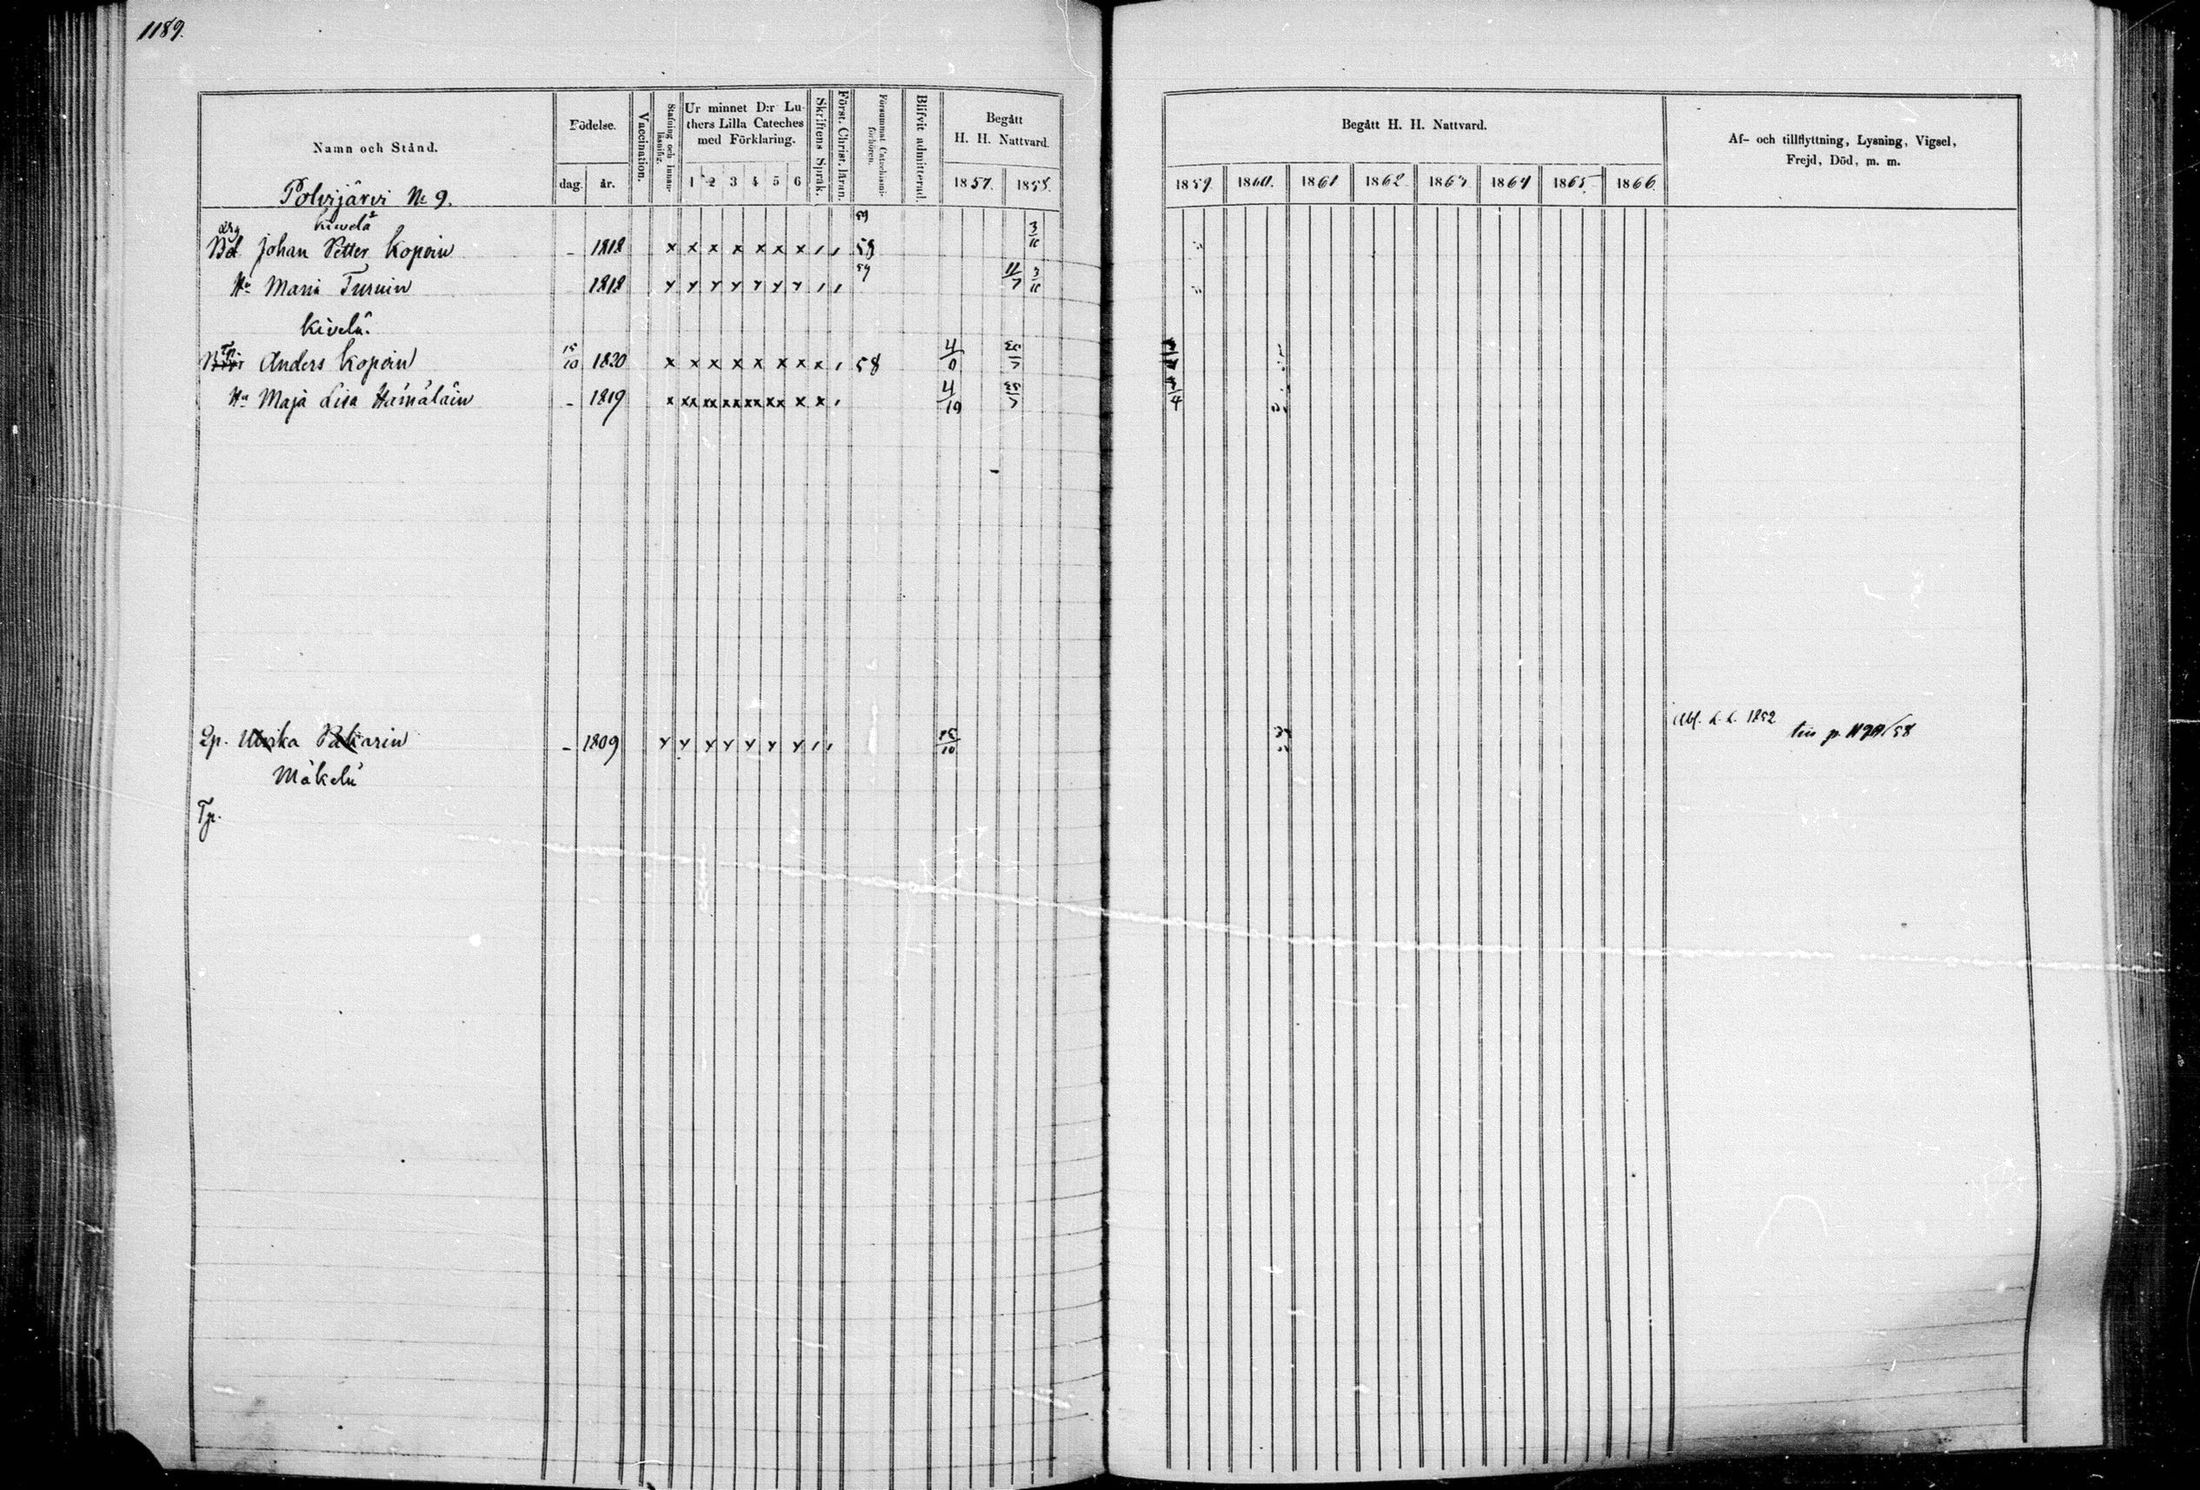 1189.
Namn och Stånd.
Födelse.
dag. år.
Vaccination.
Stafning och Innan-läsning.
Ur minnet D:r Lu-
thers Lilla Cateches
med Förklaring.
1 2 3 4 5 6
Skriftens Språk.
Först. Christ. läran.
Försummat Catechismi-
förhören.
Blifvit admitterad.
Begått
H. H. Nattvard.
1857. 1858.
Begått H. H. Nattvard.
1859. 1860. 1861 1862 1863 1864 1865 1866
Af- och tillflyttning, Lysning, Vigsel,
Frejd, Död, m. m.
Polvijärvi No 9.
Kivelä 59
Johan Petter Kopoin - 1818 x x x x x x x , , 58 3/10
Hu Maria Turuin 1818 x x x x x x x , , 59 11/7 3/10
Kivelä.
Anders Kopoin 15/10 1820 x x x x x x x x , 58
Hu Maja Lisa Hämäläin - 1819 x xx xx xx xx xx x x , 4/10
Abf. 1852
Ulrika - 1809 x x x x x x x , , 25/10 58
Mäkelä
Tp.